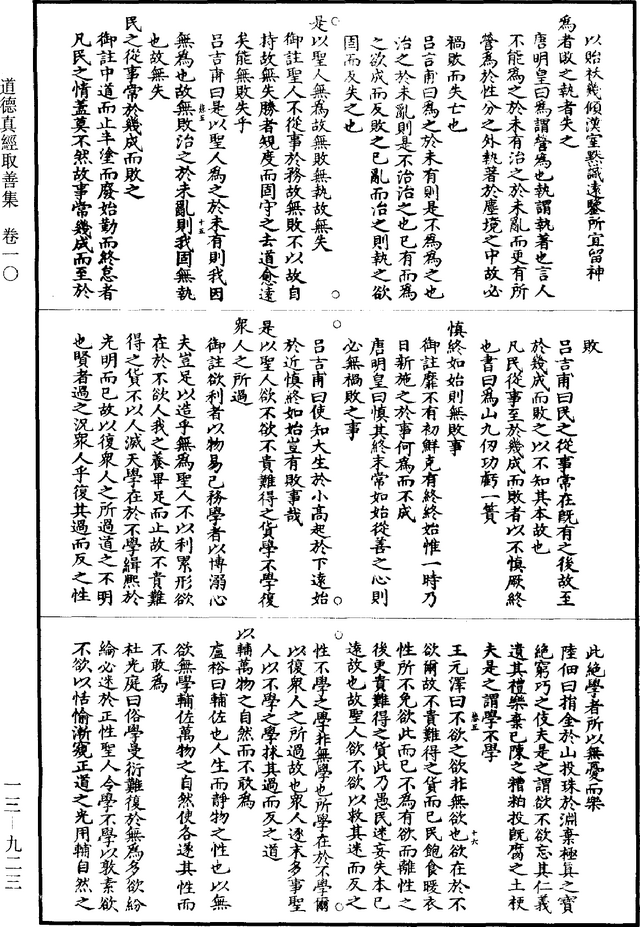 道德真經取善集　卷一〇
一三—九二三
以貽袄幾傾漢室點識遠鑒所宜留神
為者敗之執者失之
唐明皇曰為謂營為也執謂執著也言人
不能為之於未有治之於未亂而更有所
營為於性分之外執著於塵境之中故必
禍敗而失亡也
呂吉甫曰為之於未有則是不為為之也
治之於未亂則是不治治之也已有而為
之欲成而反敗之已亂而治之則執之欲
固而反失之也
是以聖人無為故無敗無執故無失
御註聖人不從事於務故無敗不以故自
持故無失勝者規度而固守之去道愈遠
矣能無敗失乎
呂吉甫曰是以聖人為之於未有則我因
無為也故無敗治之於未亂則我固無執
也故無失
民之從事常於幾成而敗之
御註中道而止半塗而廢始勤而終怠者
凡民之情蓋莫不然故事常幾成而至於
敗
呂吉甫曰民之從事常在既有之後故至
於幾成而敗之以不知其本故也
凡民從事至於幾成而敗者以不慎厥終
也書曰為山九仞功虧一簣
慎終如始則無敗事
御註靡不有初鮮克有終終始惟一時乃
日新施之於事何為而不成
唐明皇曰慎其終末常如始從善之心則
必無禍敗之事
呂吉甫曰使知大生於小高起於下遠始
於近慎終如始豈有敗事哉
是以聖人欲不欲不貴難得之貨學不學復
衆人之所過
御註欲利者以物易己務學者以博溺心
夫豈足以造乎無為聖人不以利累形欲
在於不欲人我之養畢足而止故不貴難
得之貨不以人滅天學在於不學緝熙於
光明而已故以復衆人之所過道之不明
也賢者過之況衆人乎復其過而反之性
此絕學者所以無憂而樂
陸佃曰指金於山投珠於淵棄極真之寶
絕窮巧之伎夫是之謂欲不欲忘其仁義
遺其禮樂棄已陳之糟粕投既腐之土梗
夫是之謂學不學
王元澤曰不欲之欲非無欲也欲在於不
欲爾故不貴難得之貨而已民飽食暖衣
性所不免欲此而已不為有欲而離性之
後更貴難得之貨此乃愚民迷妄失本已
遠故也故聖人欲不欲以救其迷而反之
性不學之學非無學也所學在於不學爾
以復衆人之所過故也衆人逐末多事聖
人以不學之學抹其過而反之道
以輔萬物之自然而不敢為
盧裕曰輔佐也人生而靜物之性也以無
欲無學輔佐萬物之自然使各遂其性而
不敢為
杜光庭曰俗學曼衍難復於無為多欲紛
綸必迷於正性聖人令學不學以敦素欲
不欲以恬愉漸窺正道之光用輔自然之